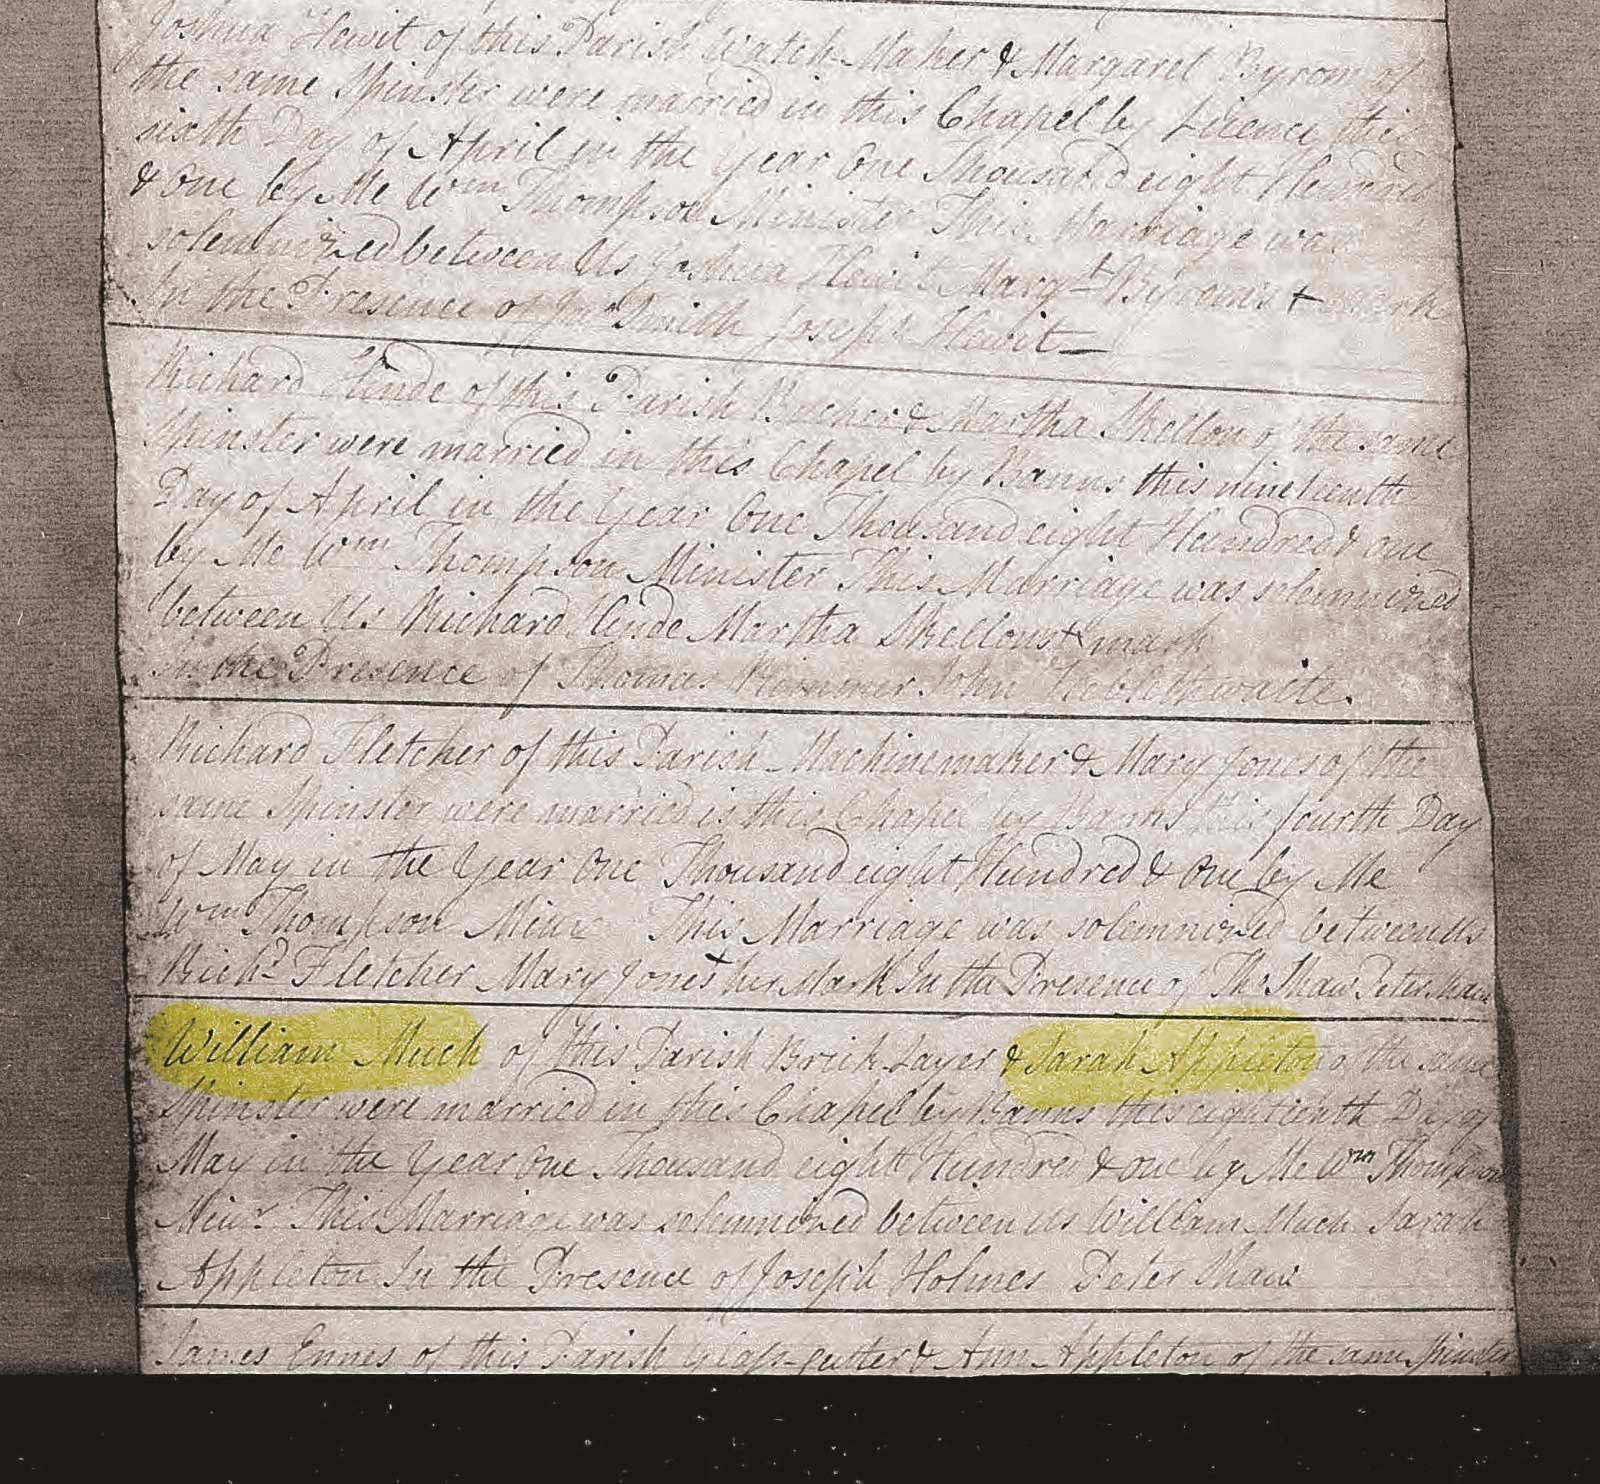 Joshua Hewit of this Parish Watch-Maker & Margaret Byrom of
the same Spinster were married in this Chapel by Licence this
sixth Day of April in the year One Thousand eight Hundred
& one by Me Wm Thompson Minister This Marriage was
solemnized between Us Joshua Hewit Margt Byrom's + mark
In the Presence of Jno Smith Joseph Hewit
Richard Hinde of this Parish & Martha Skellon of the same
Spinster were married in this Chapel by Banns this nineteenth
Day of April in the Year One Thousand eight Hundred & one
by Me Wm Thompson Minister This Marriage was solemnized
between Us Richard Hinde Martha Skellons + mark
In the Presence of Thomas Rimmer John
Richard Fletcher of this Parish Machinemaker & Mary Jones of the
same Spinster were married is this Chapel by Banns this fourth Day
of May in the Year One Thousand eight Hundred & One by Me
Wm Thompson Minr This Marriage was solemnized between Us
Richd Fletcher Mary Jones her Mark In the Presence of Thos Shaw Peter Shaw
William Much of this Parish Brick-Layer & Sarah Appleton of the same
Spinster were married in this Chapel by Banns this eightienth Day of
May in the Year One Thousand eight Hundred & one by Me Wm Thompson
Minr This Marriage was solemnized between us William Much Sarah
Appleton In the Presence of Joseph Holmes Peter Shaw
James Ennes of this Parish Glass-cutter & Ann Appleton of the same Spinster